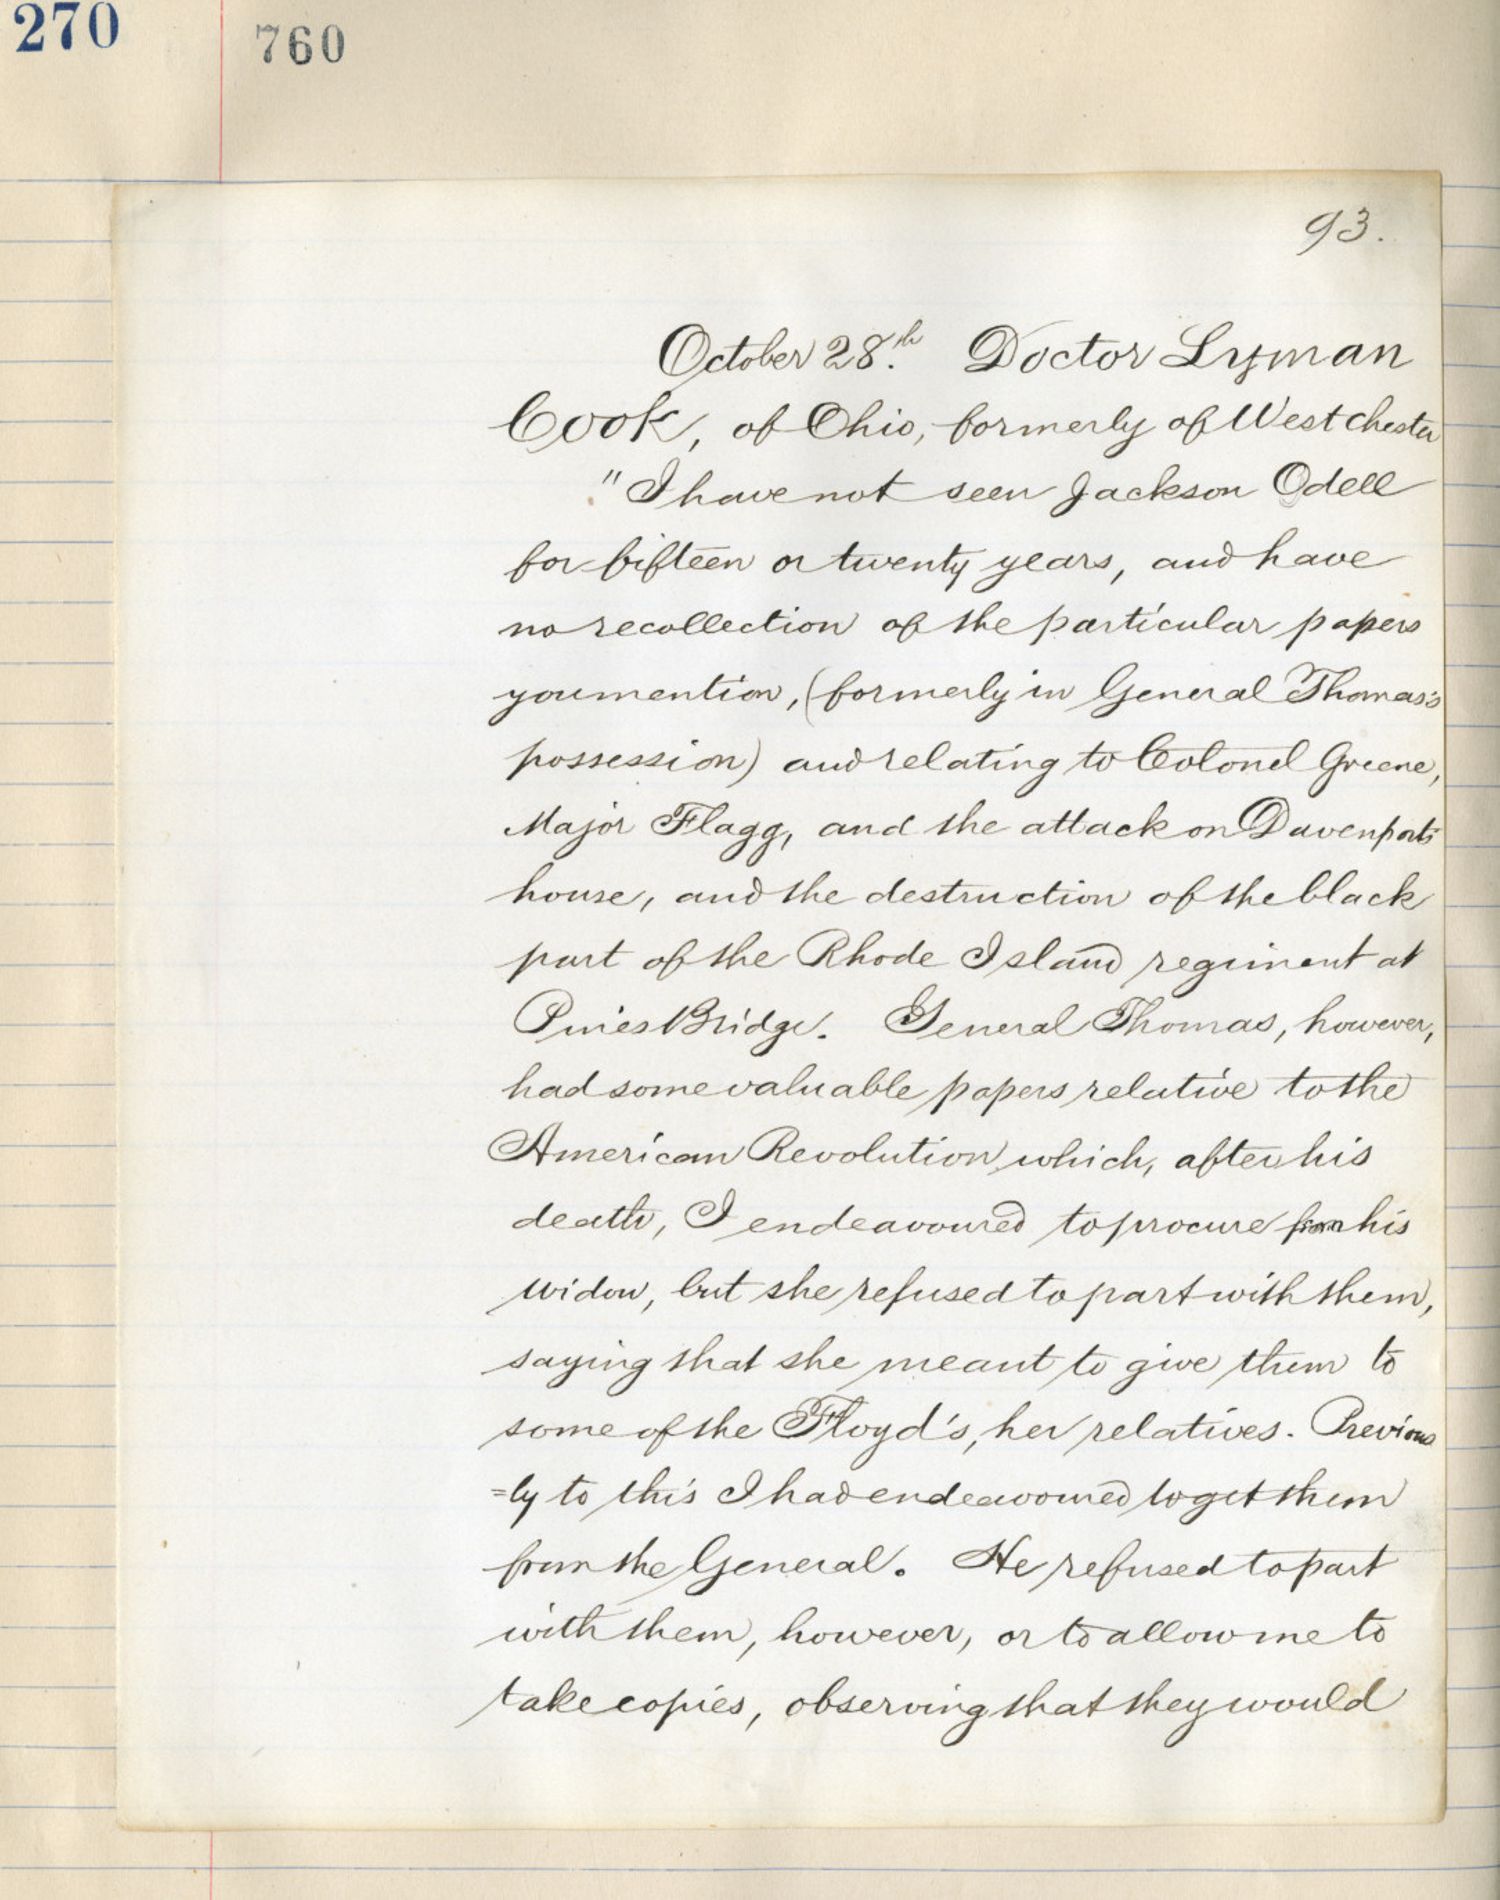 270
760
93.
October 28.th Doctor Lyman
Cook, of Ohio, formerly of Westchester
"I have not seen Jackson Odell
for fifteen or twenty years, and have
no recollection of the particular papers
you mention, (formerly in General Thomas's
possession) and relating to Colonel Greene,
Major Flagg, and the attack on Davenport's
house, and the destruction of the black
part of the Rhode Island regiment at
Pines Bridge. General Thomas, however,
had some valuable papers relative to the
American Revolution which, after his
death, I endeavoured to procure from his
widow, but she refused to part with them,
saying that she meant to give them to
some of the Floyd's, her relatives. Previous
=ly to this I had endeavoured to get them
from the General. He refused to part
with them, however, or to allow me to
take copies, observing that they would